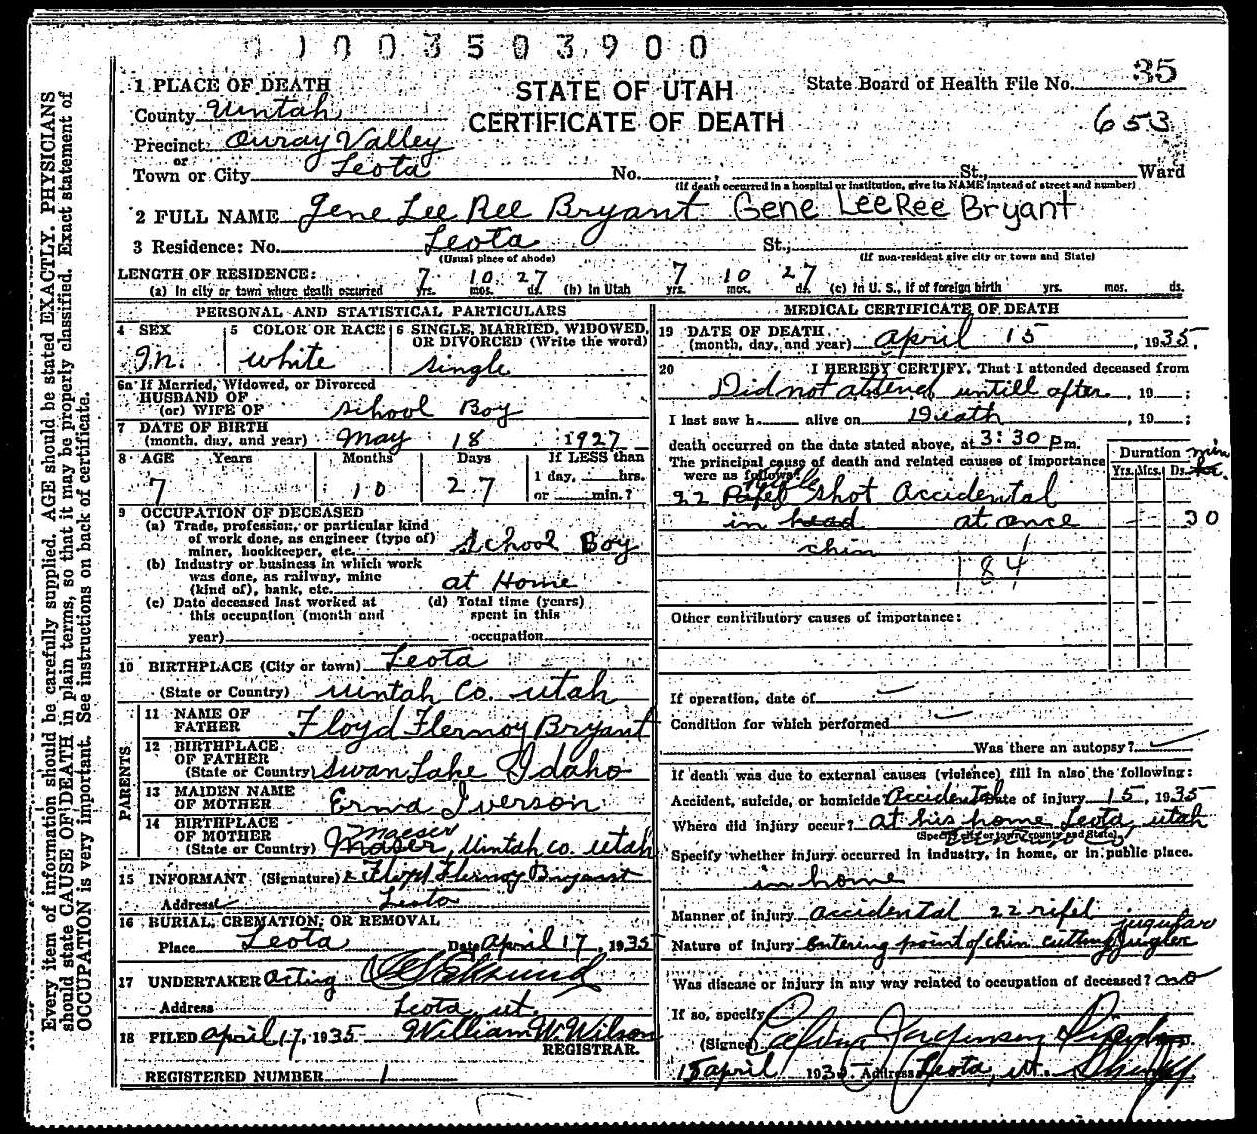 01003503900
1 PLACE OF DEATH
STATE OF UTAH
State Board of Health File No. 35
County Uintah
CERTIFICATE OF DEATH
653
Precinct Ouray Valley
or
Town or City Leota No. , St., Ward
(If death occurred in a hospital or institution, give its NAME instead of street and number)
2 FULL NAME Gene Lee Ree Bryant Gene LeeRee Bryant
3 Residence: No. Leota St.,
(Usual place of abode) (If non-resident give city or town and State)
LENGTH OF RESIDENCE:
(a) In city or town where death occurred 7 yrs. 10 mos. 27 ds. (b) In Utah 7 yrs. 10 mos. 27 ds. (c) In U. S., if of foreign birth yrs. mos. ds.
PERSONAL AND STATISTICAL PARTICULARS
4 SEX
M.
5 COLOR OR RACE
white
6 SINGLE, MARRIED, WIDOWED, OR DIVORCED (Write the word)
single
6a If Married, Widowed, or Divorced
HUSBAND OF
(or) WIFE OF school Boy
7 DATE OF BIRTH
(month, day, and year) May 18 1927
8 AGE Years Months Days If LESS than
7 10 27 1 day, hrs.
or min.?
9 OCCUPATION OF DECEASED
(a) Trade, profession, or particular kind
of work done, as engineer (type of)
miner, bookkeeper, etc. School Boy
(b) Industry or business in which work
was done, as railway, mine
(kind of), bank, etc. at Home
(c) Date deceased last worked at
this occupation (month and
year)
(d) Total time (years)
spent in this
occupation
10 BIRTHPLACE (City or town) Leota
(State or Country) Uintah Co. Utah
PARENTS
11 NAME OF
FATHER Floyd Flernoy Bryant
12 BIRTHPLACE
OF FATHER
(State or Country) Swan Lake Idaho
13 MAIDEN NAME
OF MOTHER Erma Iverson
14 BIRTHPLACE
OF MOTHER Maeser
(State or Country) Maser, Uintah co. utah
15 INFORMANT (Signature) Floyd Flernoy Bryant
Address Leota
16 BURIAL, CREMATION, OR REMOVAL
Place Leota Date april 17, 1935
17 UNDERTAKER acting
Address Leota ut.
18 FILED april 17, 1935 William W. Wilson
REGISTRAR.
REGISTERED NUMBER 1
MEDICAL CERTIFICATE OF DEATH
19 DATE OF DEATH
(month, day, and year) april 15, 1935.
20 I HEREBY CERTIFY, That I attended deceased from
Did not attend untill after, 19 ;
I last saw h alive on Death, 19 ;
death occurred on the date stated above, at 3:30 p.m.
The principal cause of death and related causes of importance
were as follows: rifle
22 shot accidental
in head at once
chin
184
Duration min
Yrs. Mos. Ds.
30
Other contributory causes of importance:
If operation, date of
Condition for which performed
Was there an autopsy?
If death was due to external causes (violence) fill in also the following:
Accident, suicide, or homicide Accidental Date of injury 15, 1935
Where did injury occur? at his home Leota, utah
(Specify city or town, county and State)
Specify whether injury occurred in industry, in home, or in public place.
in home
Manner of injury accidental 22 rifel
jugular
Nature of injury Entering point of chin cutting jugler
Was disease or injury in any way related to occupation of deceased? no
If so, specify
(Signed)
15 april 1935. Address Leota, ut.
Every item of information should be carefully supplied. AGE should be stated EXACTLY. PHYSICIANS
should state CAUSE OF DEATH in plain terms, so that it may be properly classified. Exact statement of
OCCUPATION is very important. See instructions on back of certificate.